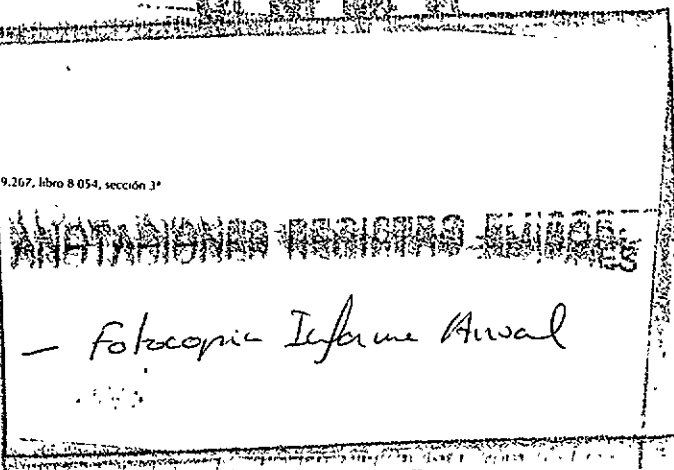 9.267, libro 8 054, sección 3ª
ANOTACIONES REGISTRO EMISORES
— Fotocopia Informe Anual